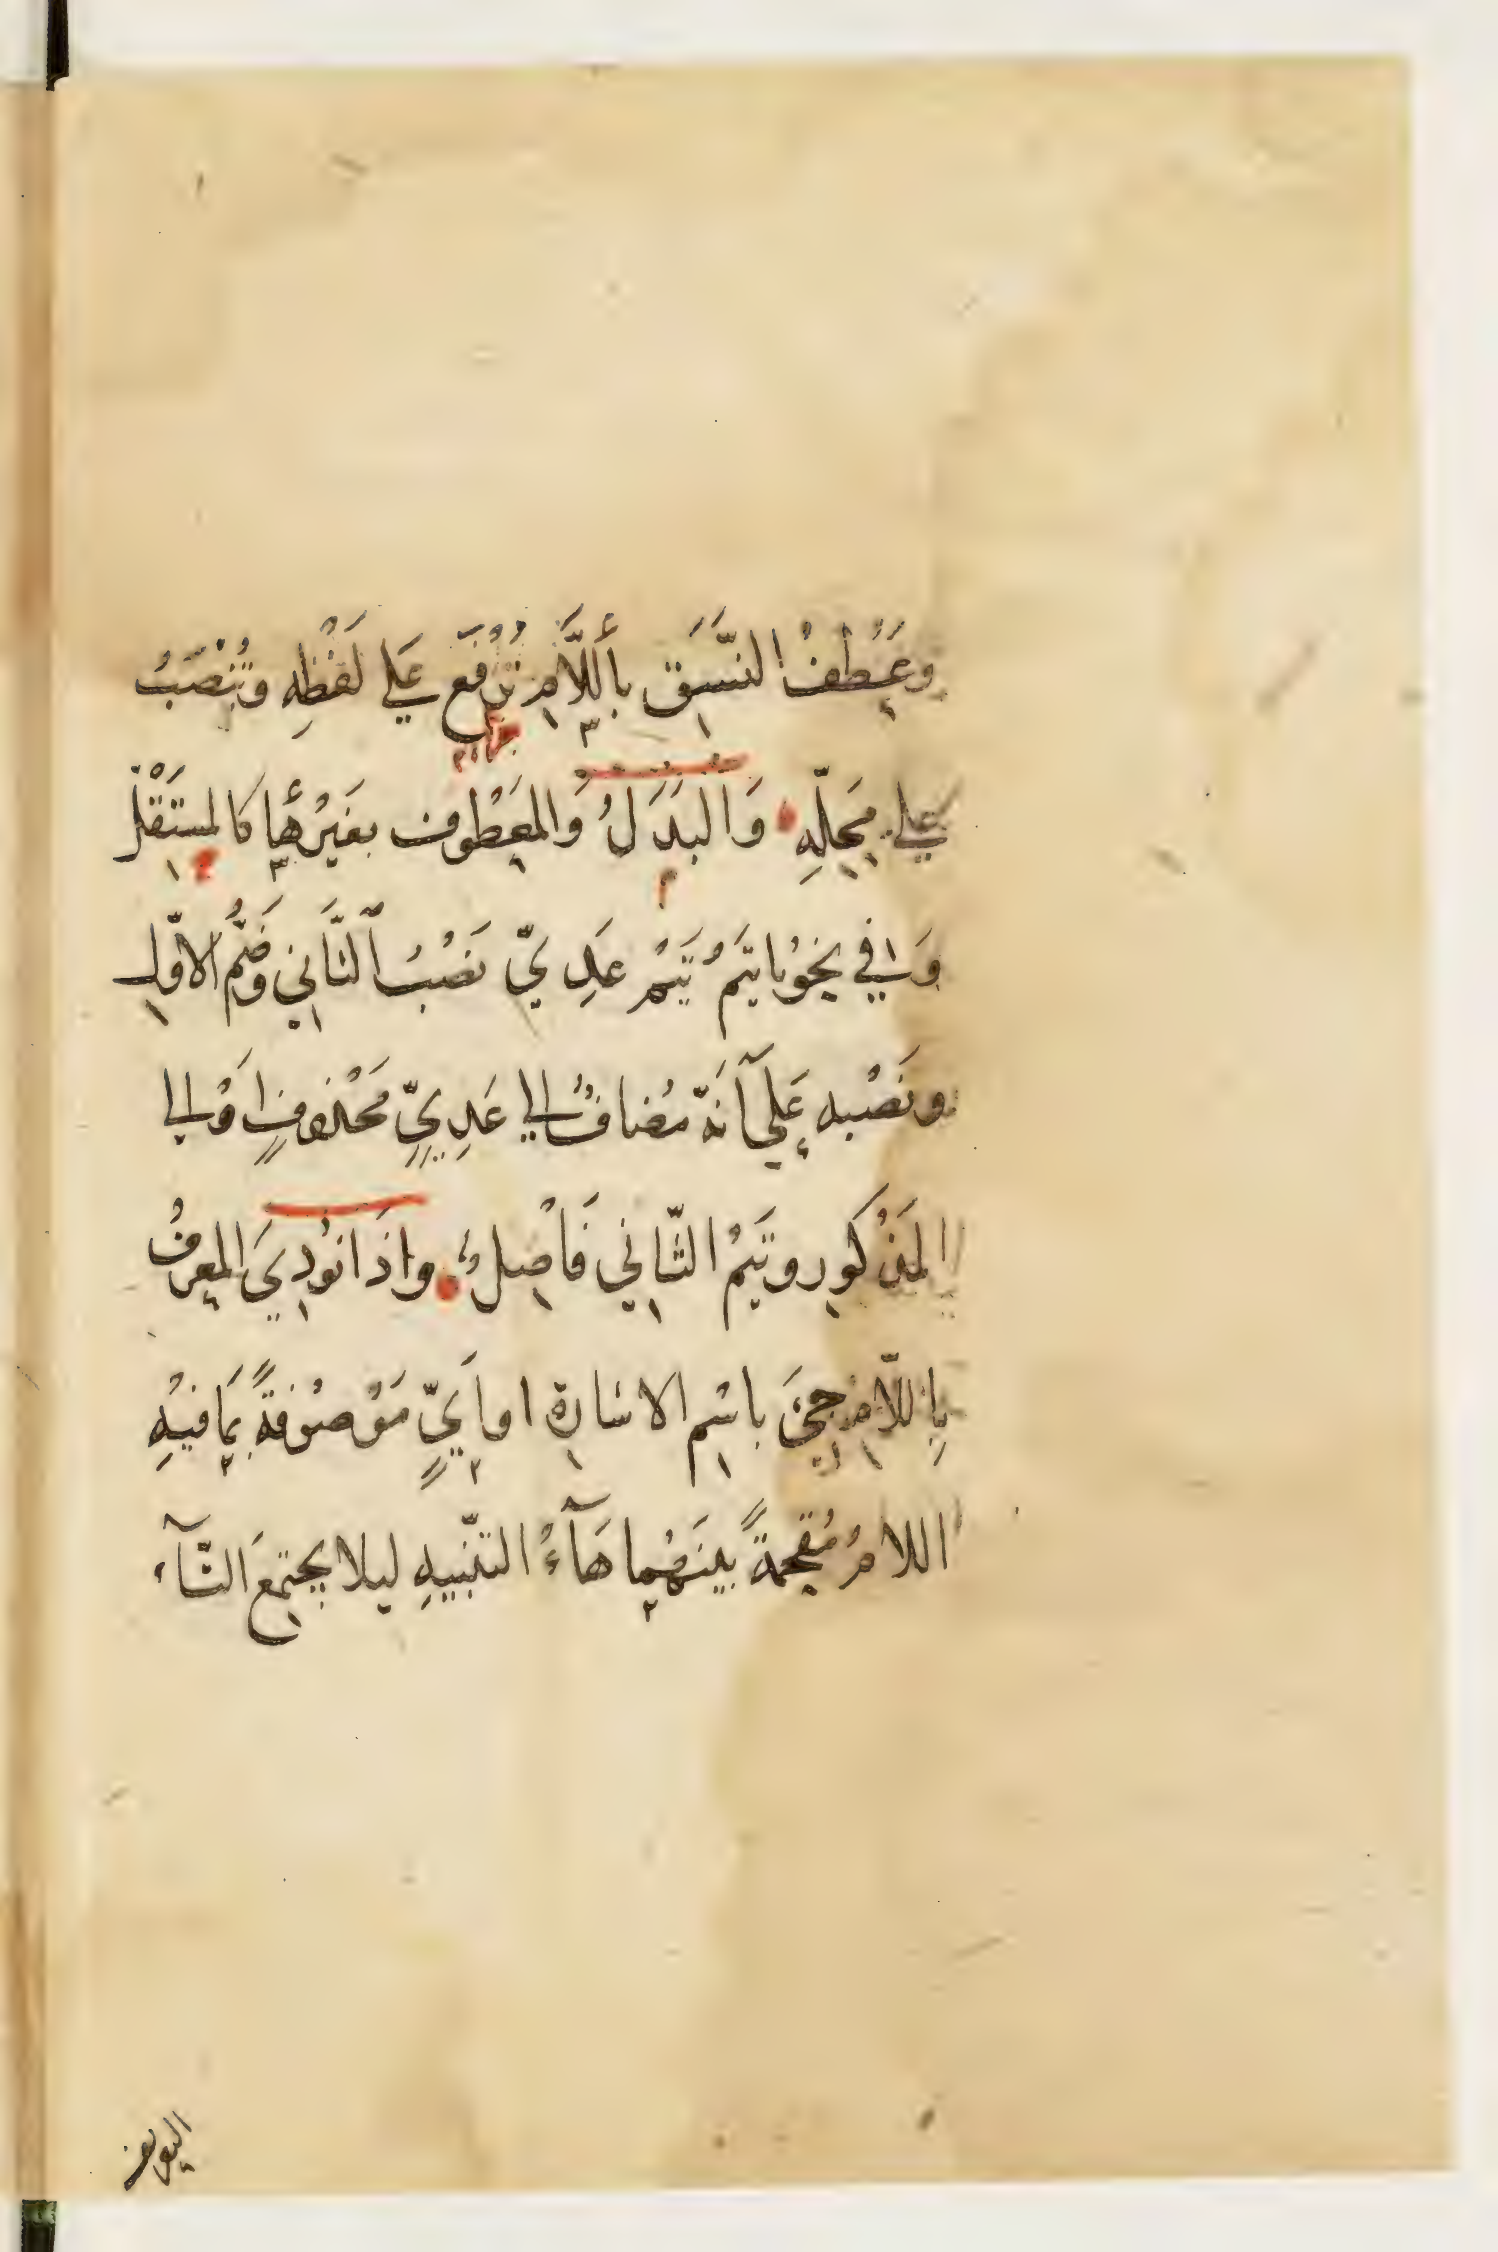 وَعَطْفُ النَّسَقِ بِأللَّامِ تُرْفَعُ عَلى لَفْظِهِ وَتُنْصَبُ
عَلى مَحَلِّهِ وَالْبَدَلُ وَالْمَعْطُوف بِغَيْرِهَا كَالمستَقِلّ
وَفي نحْوِ يا تَيْمُ تَيْمَ عَدِيّ نَصْبُ الثَّاني وَضَمُّ الاوّل
ونَصْبه عَلى أنَّهُ مُضافٌ الى عَدِيٍّ مَحْذوفٍ اَوْ الى
المَذْكورِ وتَيْمُ الثَّاني فَاصِلٌ وَاذَا نُودِيَ المعرفُ
بِاللّامِ جيَّ باسْمِ الاشارة او اَيٍّ مَوْصوْفةً بمَا فيْهِ
اللامُ مُقحمةً بينَهُما هَآءُ التنْبيهِ ليلا يجتمعَ التآء